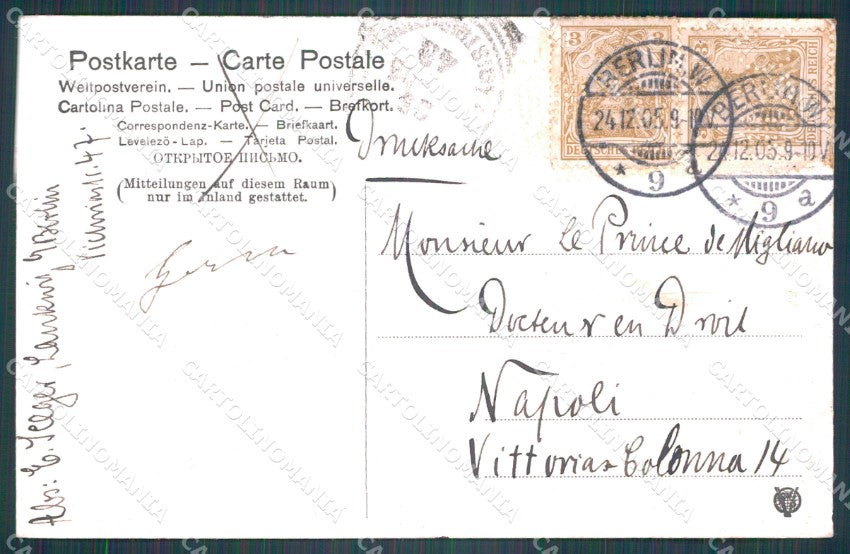 Postkarte — Carte Postale
Weltpostverein. — Union postale universelle.
Cartolina Postale. — Post Card. — Brefkort.
Correspondenz-Karte. — Briefkaart.
Levelező-Lap. — Tarjeta Postal.
ОТКРЫТОЕ ПИСЬМО.
(Mitteilungen auf diesem Raum
nur im Inland gestattet.)
Drucksache
3
3
DEUTSCHES REICH
BERLIN.W.
24.12.05.9-10V
* 9 a
BERLIN.W.
24.12.05.9-10V
* 9 a
Monsieur Le Prince de Migliano
Docteur en Droit
Napoli
Vittoria Colonna 14
Abs: E. Seeger, Berlin
47.
CARTOLINOMANIA